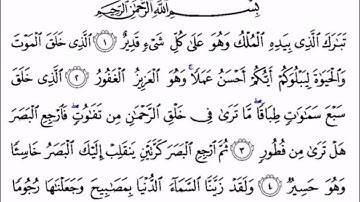 بِسْمِ اللَّهِ الرَّحْمَٰنِ الرَّحِيمِ
تَبَارَكَ الَّذِي بِيَدِهِ الْمُلْكُ وَهُوَ عَلَىٰ كُلِّ شَيْءٍ قَدِيرٌ ١ الَّذِي خَلَقَ الْمَوْتَ
وَالْحَيَاةَ لِيَبْلُوَكُمْ أَيُّكُمْ أَحْسَنُ عَمَلًا ۚ وَهُوَ الْعَزِيزُ الْغَفُورُ ٢ الَّذِي خَلَقَ
سَبْعَ سَمَاوَاتٍ طِبَاقًا ۖ مَا تَرَىٰ فِي خَلْقِ الرَّحْمَٰنِ مِن تَفَاوُتٍ ۖ فَارْجِعِ الْبَصَرَ
هَلْ تَرَىٰ مِن فُطُورٍ ٣ ثُمَّ ارْجِعِ الْبَصَرَ كَرَّتَيْنِ يَنقَلِبْ إِلَيْكَ الْبَصَرُ خَاسِئًا
وَهُوَ حَسِيرٌ ٤ وَلَقَدْ زَيَّنَّا السَّمَاءَ الدُّنْيَا بِمَصَابِيحَ وَجَعَلْنَاهَا رُجُومًا